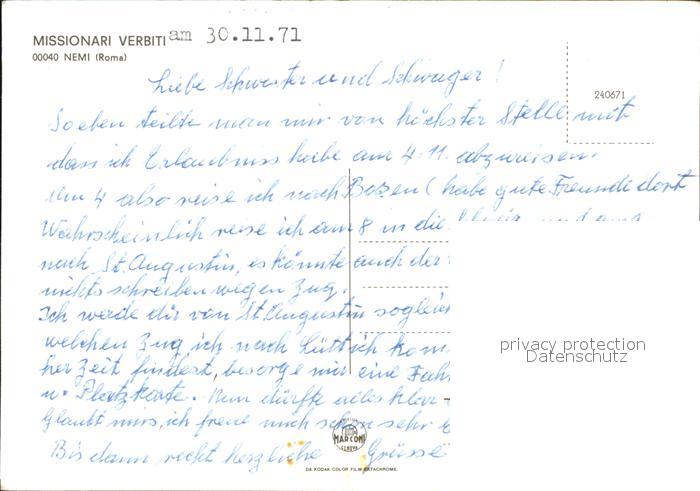 MISSIONARI VERBITI am 30.11.71
00040 NEMI (Roma)
240671
Liebe Schwester und Schwager!
Soeben teilte man mir von höchster Stelle mit
dass ich Erlaubniss habe am 4.11. abzureisen.
Am 4 also reise ich nach Bozen (habe gute Freunde dort
Wahrscheinlich reise ich am 8 in die
nach St. Augustin, es könnte auch der
nichts schreiben wegen Zug.
Ich werde dir von St. Augustin sogleich
welchen Zug ich nach Lüttich kom
her Zeit findest, besorge mir eine Fah
u. Platzkarte. Nun dürfte alles klar
Glaubt mirs, ich freue mich schon sehr
Bis dann recht herzliche Grüsse
privacy protection
Datenschutz
MARCONI
GENOVA
DA KODAK COLOR FILM EKTACHROME